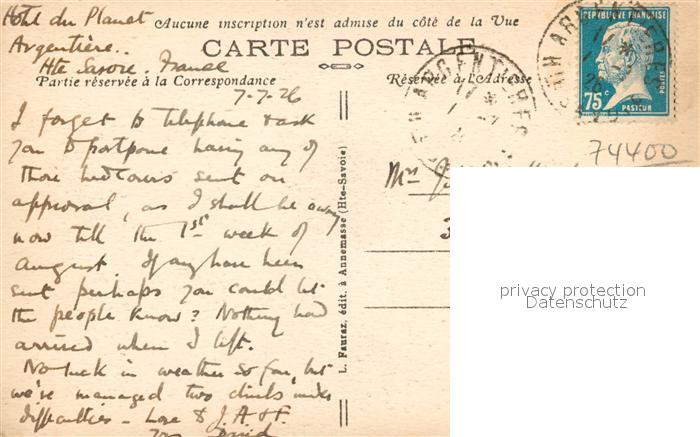 Hotel du Planet
Argentière..
Hte Savoie. France
Aucune inscription n'est admise du côté de la Vue
CARTE POSTALE
Partie réservée à la Correspondance
Réservée à l'Adresse
7-7-26
I forgot to telephone & ask
you to postpone having any of
those bedcovers sent on
approval, as I shall be away
now till the 1st week of
August. If any have been
sent perhaps you could let
the people know? Nothing had
arrived when I left.
No luck in weather so far, but
we've managed two climbs under
difficulties - Love to J. A. & F.
David
L. Fauraz, édit. à Annemasse (Hte-Savoie)
RÉPUBLIQUE FRANÇAISE
75c
POSTES
PASTEUR
ARGENTIERES
74400
Mrs
3
privacy protection
Datenschutz